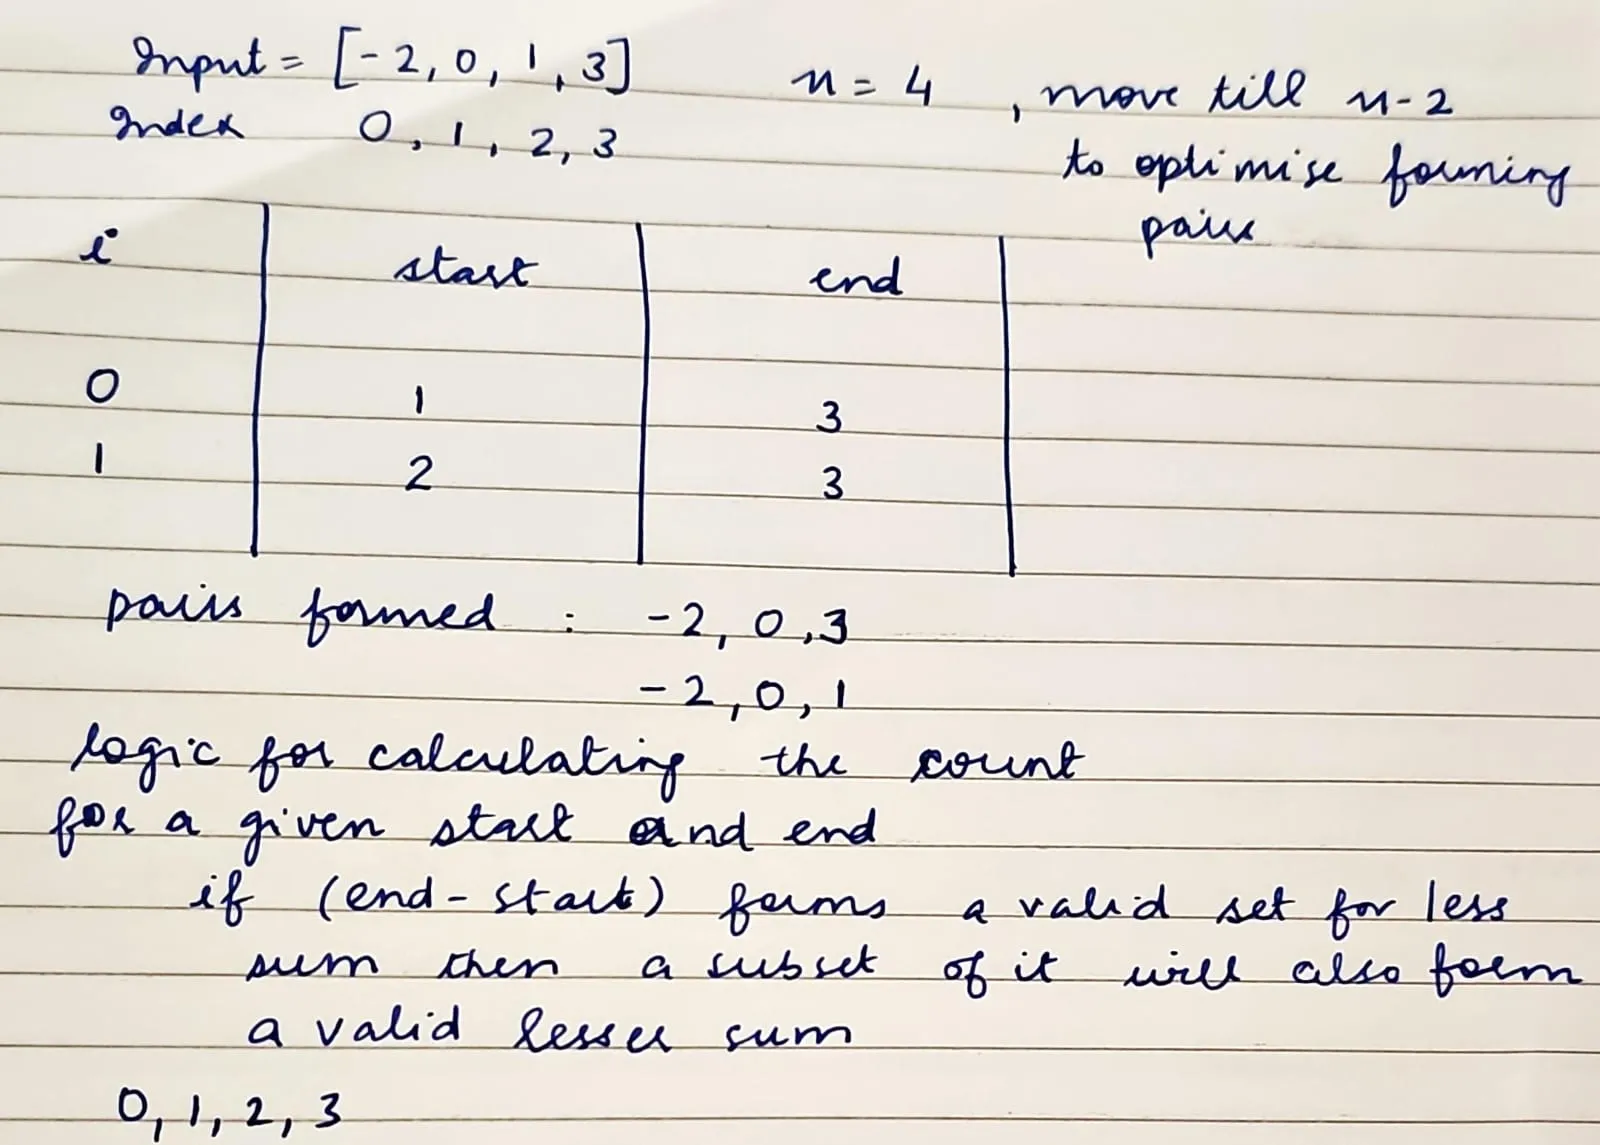 Input = [-2, 0, 1, 3] n = 4 , move till n-2
Index 0, 1, 2, 3 to optimise forming
pairs
i start end
0 1 3
1 2 3
pairs formed : -2, 0, 3
-2, 0, 1
logic for calculating the count
for a given start and end
if (end - start) forms a valid set for less
sum then a subset of it will also form
a valid lesser sum
0, 1, 2, 3